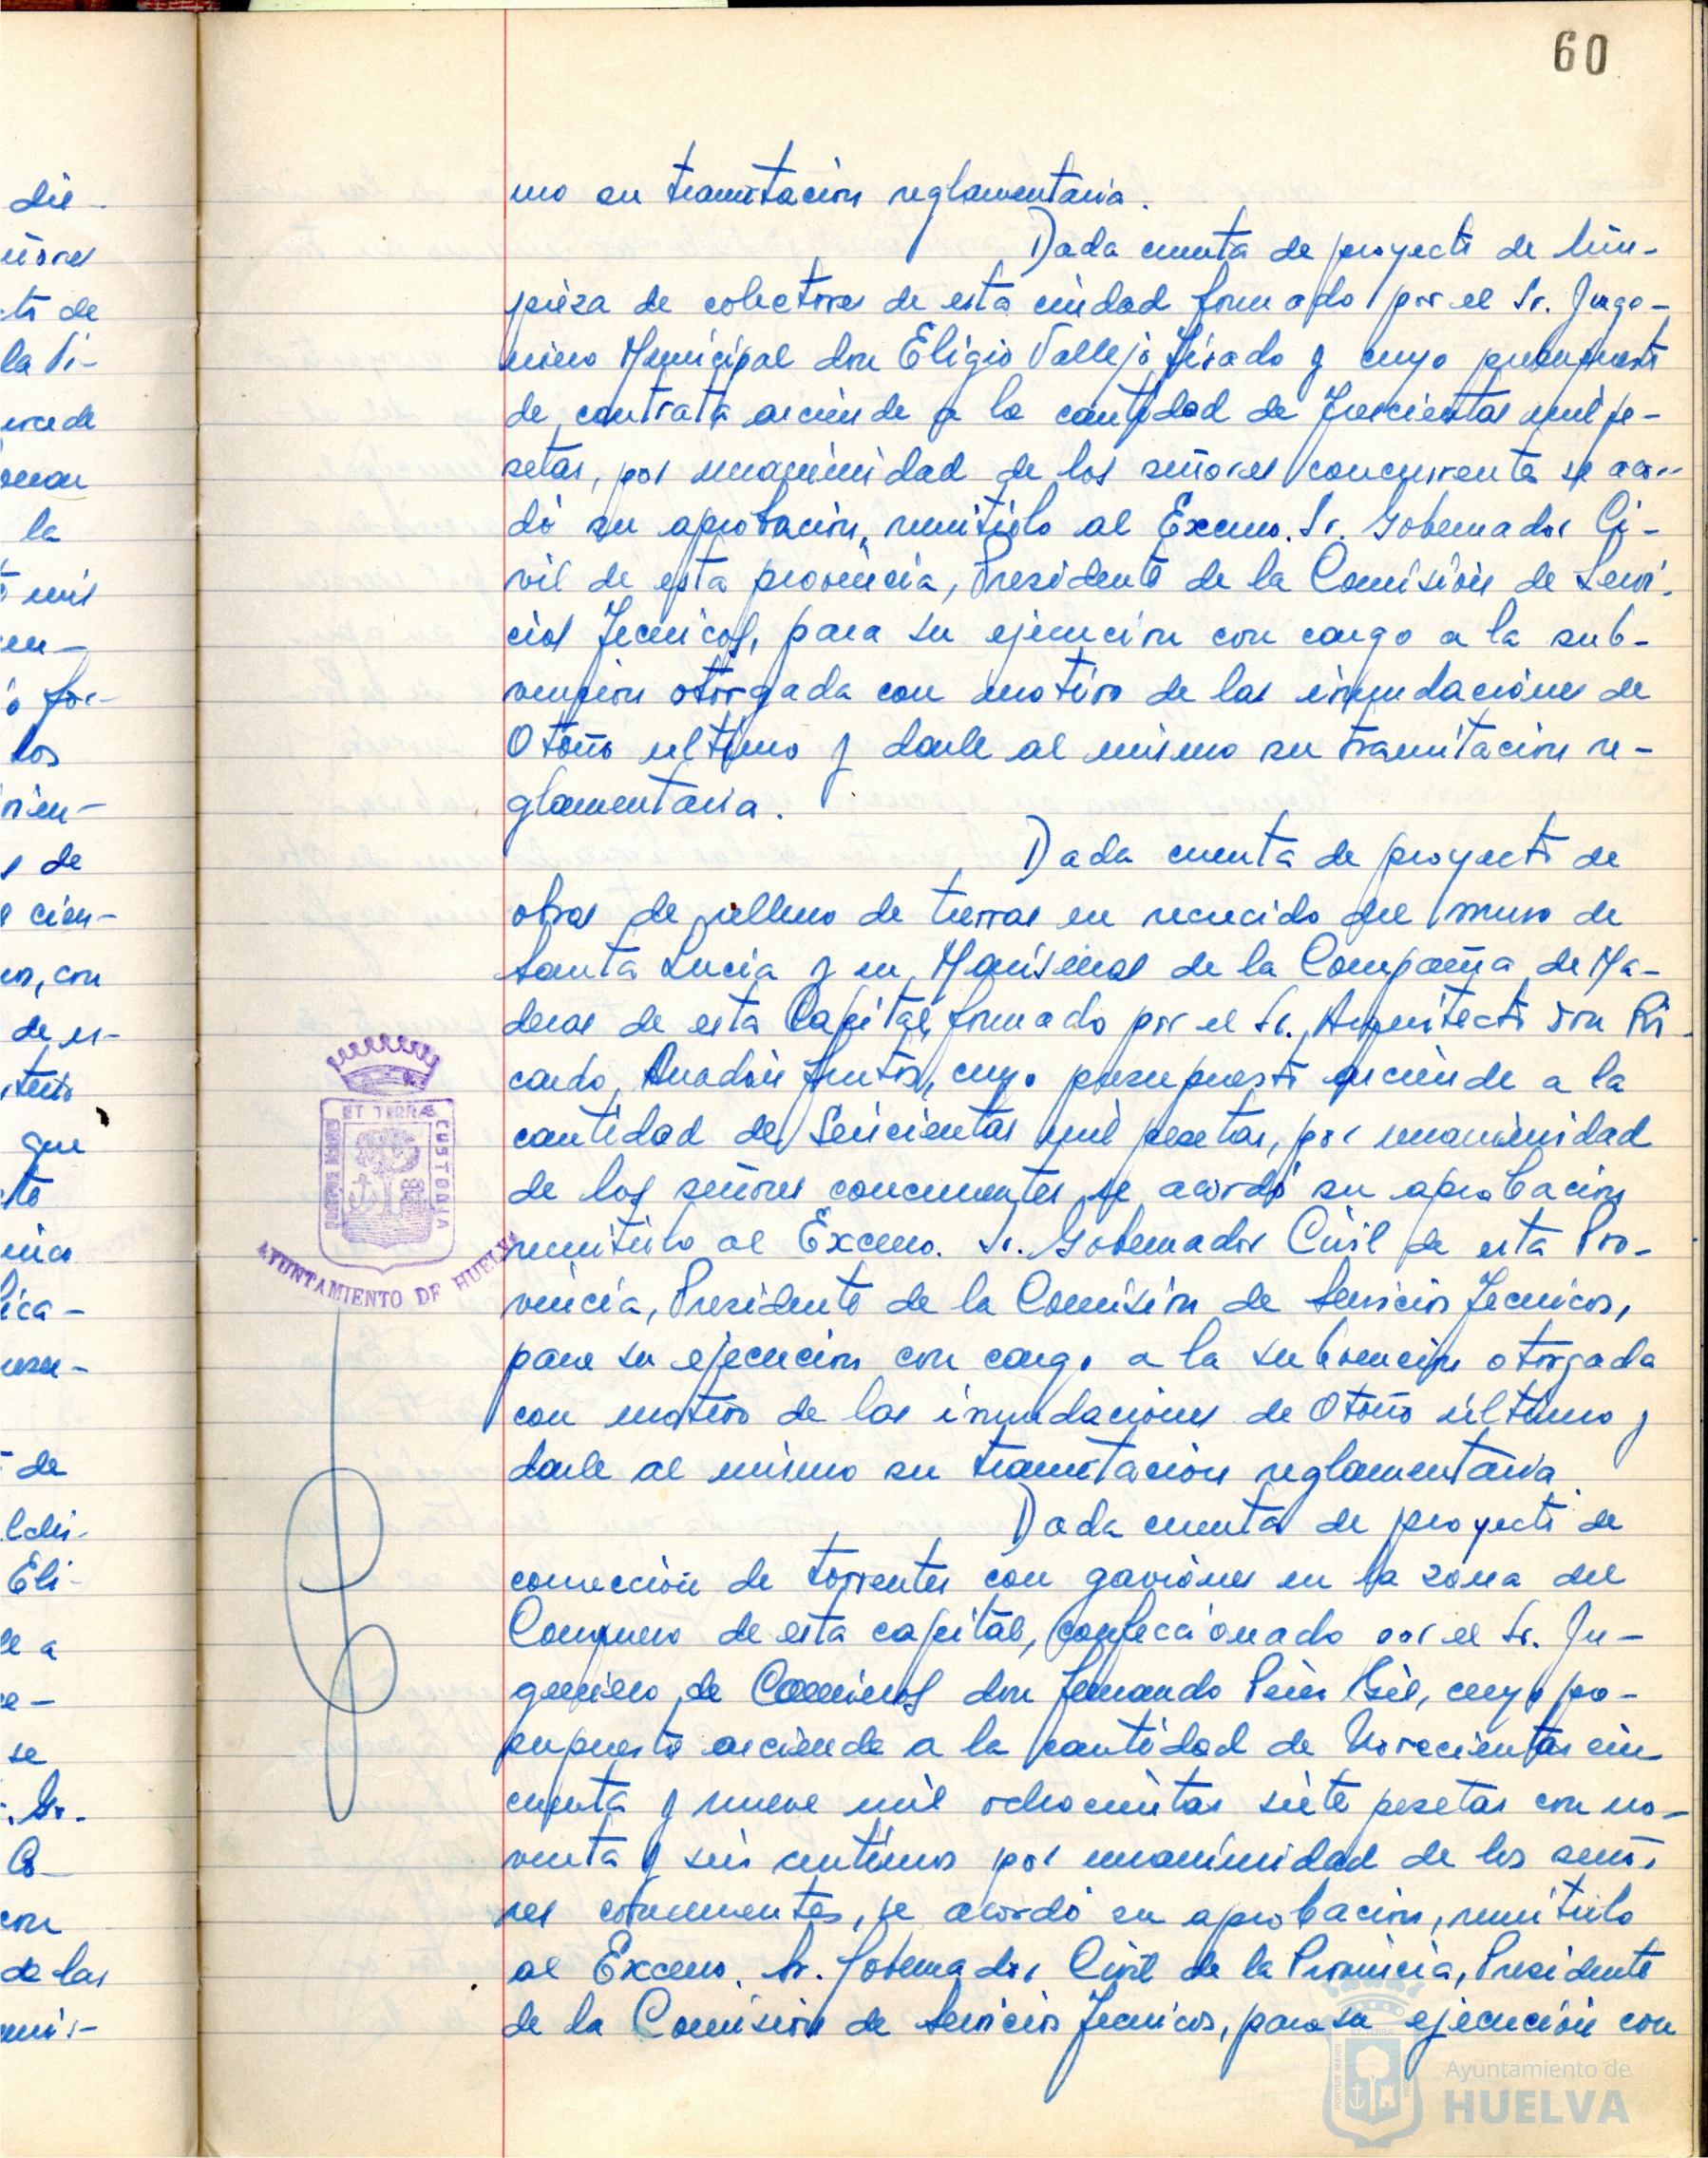 60
mo su tramitación reglamentaria.
Dada cuenta de proyecto de lim-
pieza de colectores de esta ciudad formado por el Sr. Inge-
niero Municipal don Eligio Vallejo Tirado y cuyo presupuesto
de contrata asciende a la cantidad de Trescientas mil pe-
setas, por unanimidad de los señores concurrentes se acor-
dó su aprobación, remitirlo al Excmo. Sr. Gobernador Ci-
vil de esta provincia, Presidente de la Comisión de Servi-
cios Técnicos, para su ejecución con cargo a la sub-
vención otorgada con motivo de las inundaciones de
Otoño último y darle al mismo su tramitación re-
glamentaria.
Dada cuenta de proyecto de
obras de relleno de tierras en recrecido del muro de
Santa Lucia y en Marismas de la Compañia de Ma-
deras de esta Capital, formado por el Sr. Arquitecto don Ri-
cardo Anadón Frutos, cuyo presupuesto asciende a la
cantidad de Seiscientas mil pesetas, por unanimidad
de los señores concurrentes se acordó su aprobación
remitirlo al Excmo. Sr. Gobernador Civil de esta Pro-
vincia, Presidente de la Comisión de Servicios Técnicos,
para su ejecución con cargo a la subvención otorgada
con motivo de las inundaciones de Otoño último y
darle al mismo su tramitación reglamentaria
Dada cuenta de proyecto de
corrección de torrentes con gaviones en la zona del
Conquero de esta capital, confeccionado por el Sr. In-
geniero de Caminos don Fernando Peirs Gil, cuyo pre-
supuesto asciende a la cantidad de Novecientas cin-
cuenta y nueve mil ochocientas siete pesetas con no-
venta y seis centimos por unanimidad de los seño-
res concurrentes, se acordó su aprobación, remitirlo
al Excmo. Sr. Gobernador Civil de la Provincia, Presidente
de la Comisión de Servicios Técnicos, para su ejecución con
ET TERRÆ
CUSTODIA
PORTUS MARIS
AYUNTAMIENTO DE HUELVA
Ayuntamiento de
HUELVA